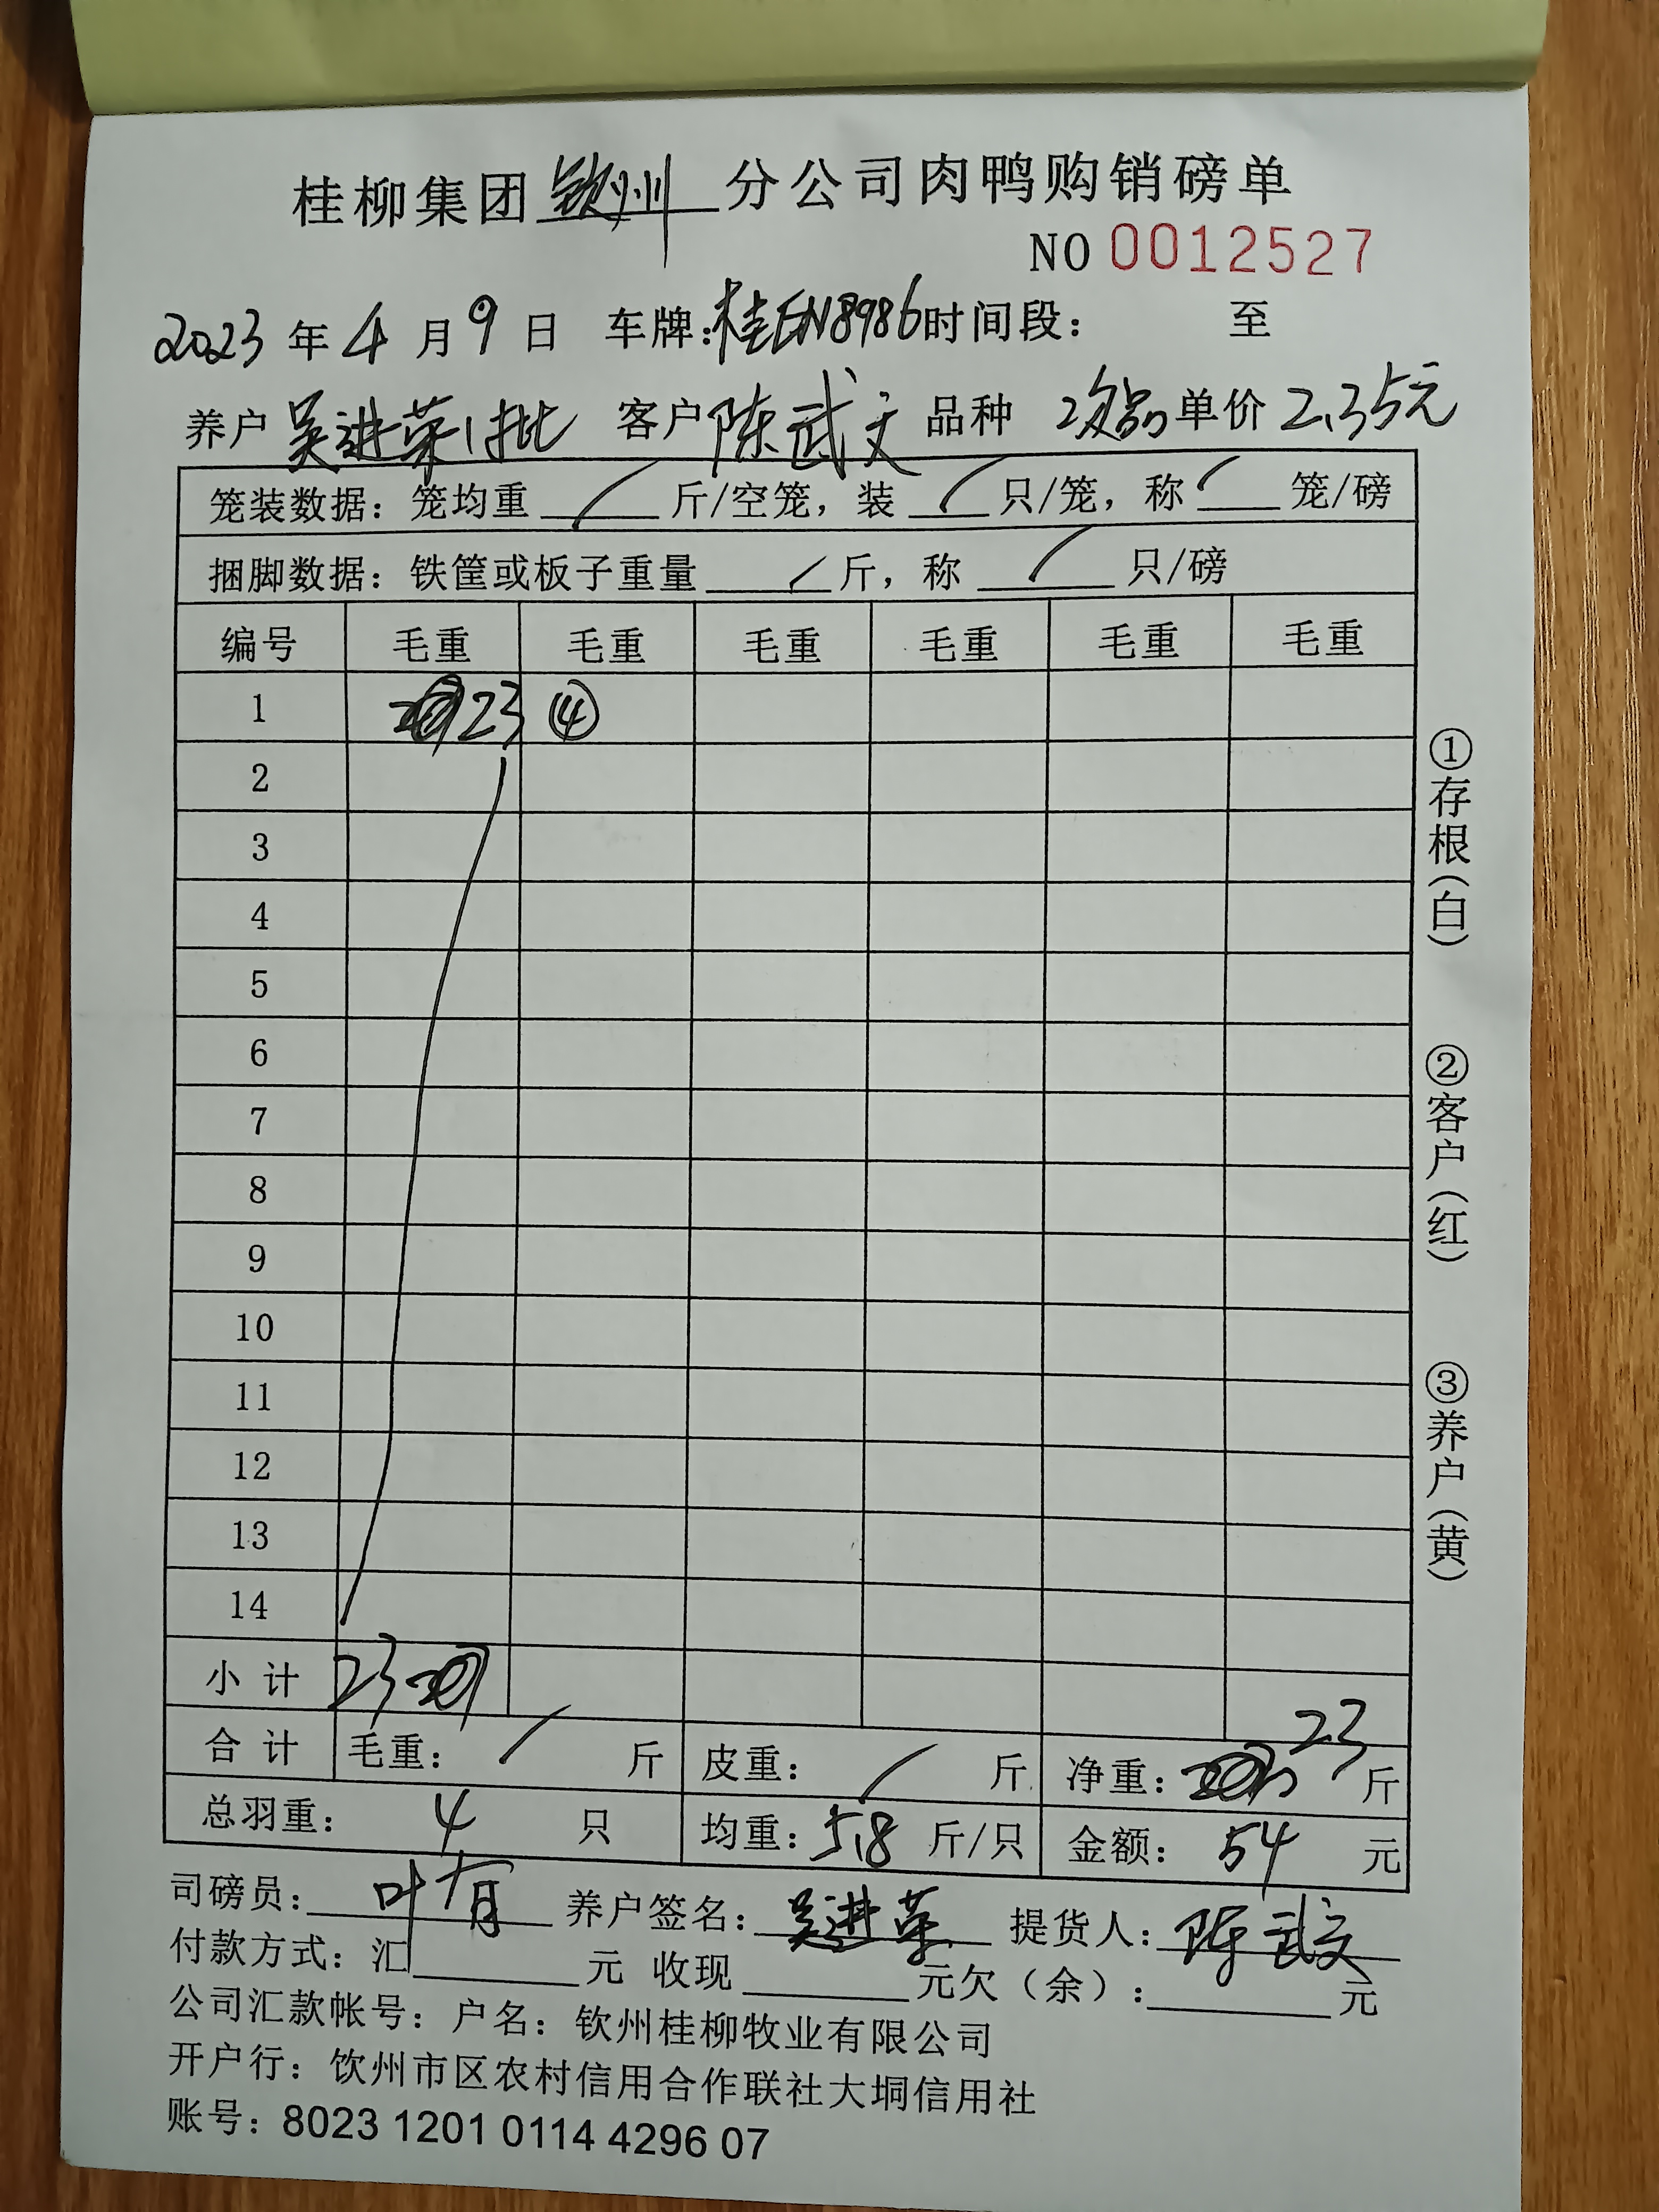 桂柳集团钦州分公司肉鸭购销磅单
NO 0012527
2023年4月9日 车牌:桂EN8986时间段: 至
养户 吴进荣1批 客户 陈武文 品种 2次品 单价 2.35元
笼装数据:笼均重 / 斤/空笼,装 / 只/笼,称 / 笼/磅
捆脚数据:铁筐或板子重量 / 斤,称 / 只/磅
编号 毛重 毛重 毛重 毛重 毛重 毛重
1 23 ④
2
3
4
5
6
7
8
9
10
11
12
13
14
小计 23
合计 毛重: / 斤 皮重: / 斤 净重: 23 斤
总羽重: 4 只 均重: 5.8 斤/只 金额: 54 元
司磅员: 叶 养户签名: 吴进荣 提货人: 陈武文
付款方式:汇 元 收现 元欠(余): 元
公司汇款帐号:户名:钦州桂柳牧业有限公司
开户行:钦州市区农村信用合作联社大垌信用社
账号:8023 1201 0114 4296 07
①存根(白)
②客户(红)
③养户(黄)